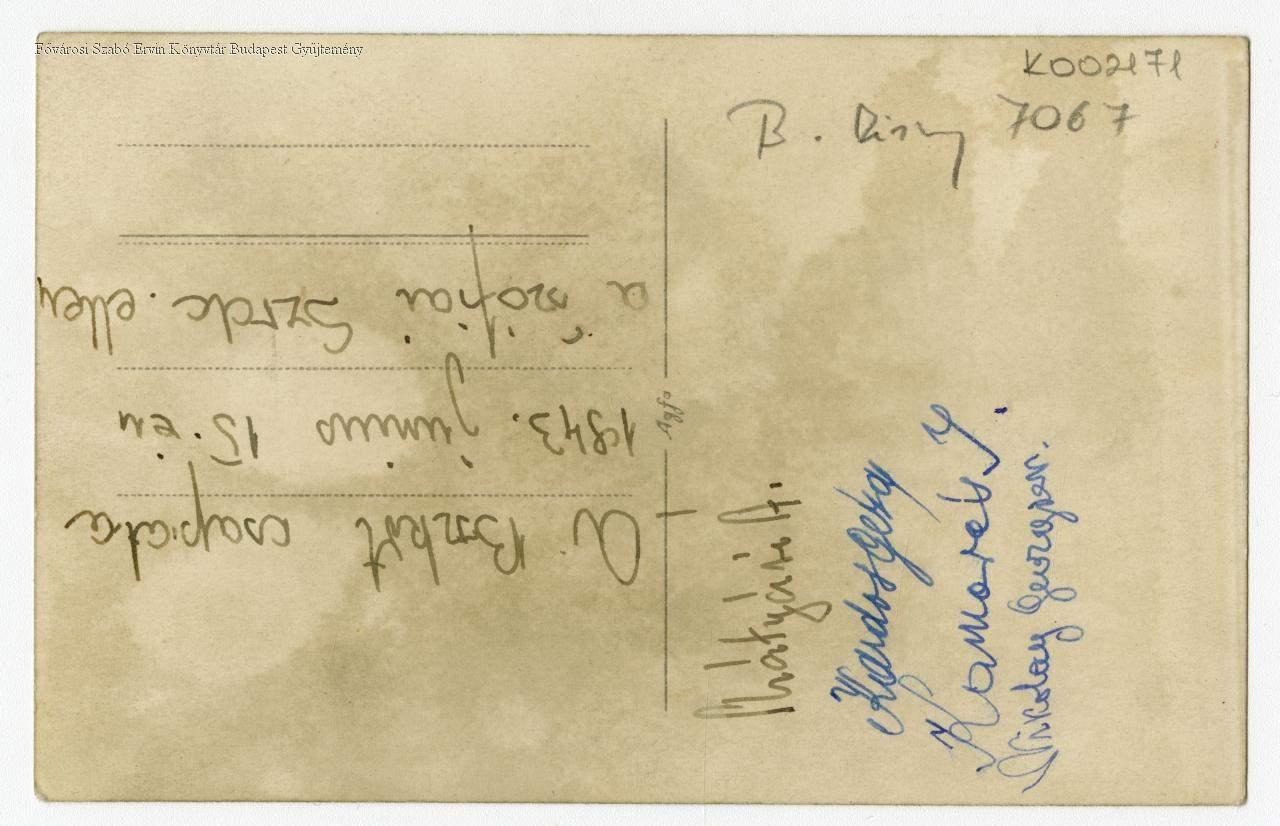 Fővárosi Szabó Ervin Könyvtár Budapest Gyűjtemény
K002171
B. 7067
A Bszkrt csapata
1943. június 15.-én
a szófiai Szrdc. ellen
Agfa
Mátyási A.
Kardos Géza
Komoróczy
Nikolay